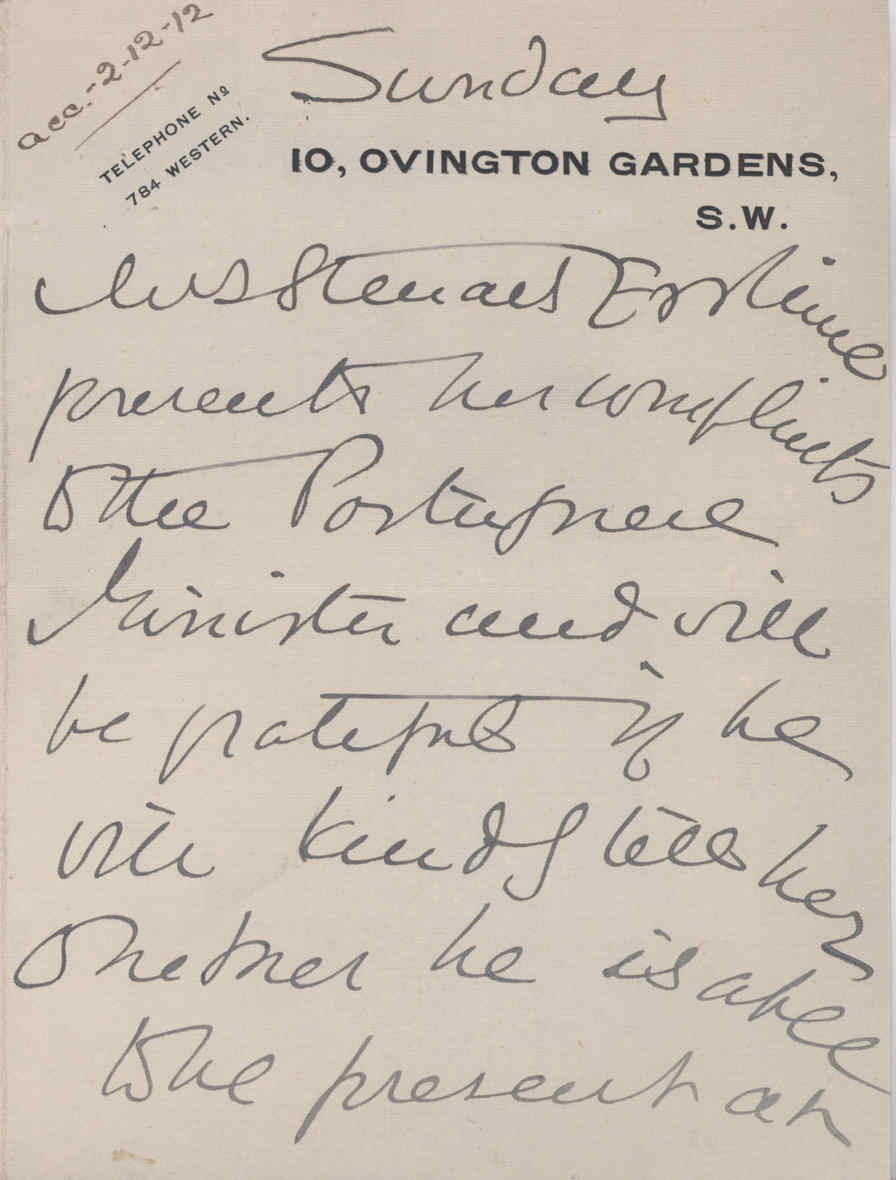 acc. - 2-12-12
TELEPHONE Nº
784 WESTERN.
Sunday
10, OVINGTON GARDENS,
S.W.
Mrs Steuart Erskine
presents her compliments
to the Portuguese
Minister and will
be grateful if he
will kindly tell her
whether he is able
to be present at